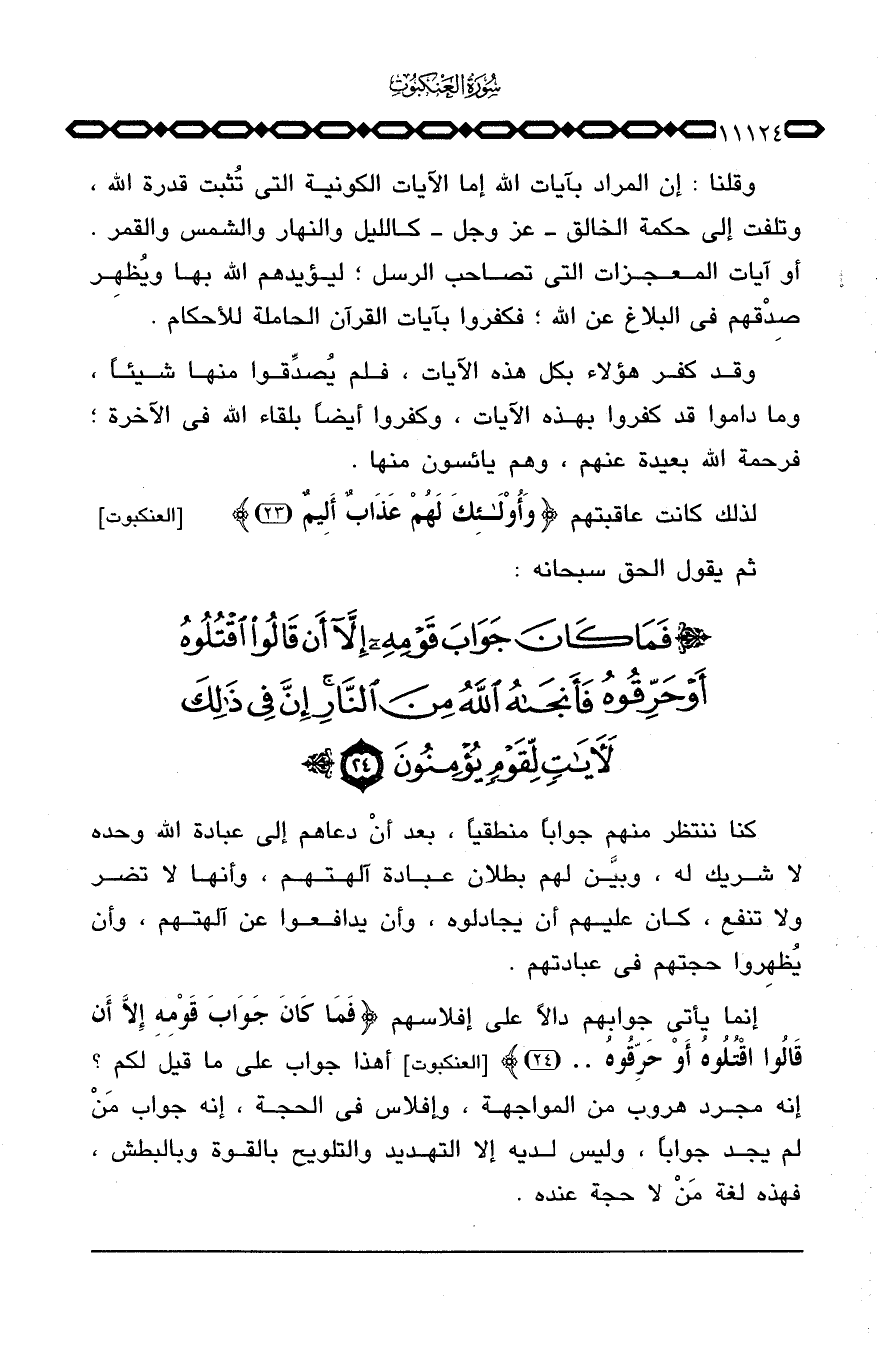 سُورَةُ العَنْكَبُوتِ
١١١٢٤
وقلنا : إن المراد بآيات الله إما الآيات الكونية التى تُثبت قدرة الله ،
وتلفت إلى حكمة الخالق - عز وجل - كالليل والنهار والشمس والقمر .
أو آيات المعجزات التى تصاحب الرسل ؛ ليؤيدهم الله بها ويُظهِر
صِدْقهم فى البلاغ عن الله ؛ فكفروا بآيات القرآن الحاملة للأحكام .
وقد كفر هؤلاء بكل هذه الآيات ، فلم يُصدِّقوا منها شيئاً ،
وما داموا قد كفروا بهذه الآيات ، وكفروا أيضاً بلقاء الله فى الآخرة ؛
فرحمة الله بعيدة عنهم ، وهم يائسون منها .
لذلك كانت عاقبتهم ﴿ وَأُوْلَـٰئِكَ لَهُمْ عَذَابٌ أَلِيمٌ (٢٣) ﴾ [العنكبوت]
ثم يقول الحق سبحانه :
﴿ فَمَا كَانَ جَوَابَ قَوْمِهِۦٓ إِلَّآ أَن قَالُوا۟ ٱقْتُلُوهُ
أَوْ حَرِّقُوهُ فَأَنجَىٰهُ ٱللَّهُ مِنَ ٱلنَّارِ ۚ إِنَّ فِى ذَٰلِكَ
لَـَٔايَـٰتٍ لِّقَوْمٍ يُؤْمِنُونَ ٢٤ ﴾
كنا ننتظر منهم جواباً منطقياً ، بعد أنْ دعاهم إلى عبادة الله وحده
لا شريك له ، وبيَّن لهم بطلان عبادة آلهتهم ، وأنها لا تضر
ولا تنفع ، كان عليهم أن يجادلوه ، وأن يدافعوا عن آلهتهم ، وأن
يُظهِروا حجتهم فى عبادتهم .
إنما يأتى جوابهم دالاً على إفلاسهم ﴿ فَمَا كَانَ جَوَابَ قَوْمِهِ إِلاَّ أَن
قَالُوا اقْتُلُوهُ أَوْ حَرِّقُوهُ .. (٢٤) ﴾ [العنكبوت] أهذا جواب على ما قيل لكم ؟
إنه مجرد هروب من المواجهة ، وإفلاس فى الحجة ، إنه جواب مَنْ
لم يجد جواباً ، وليس لديه إلا التهديد والتلويح بالقوة وبالبطش ،
فهذه لغة مَنْ لا حجة عنده .